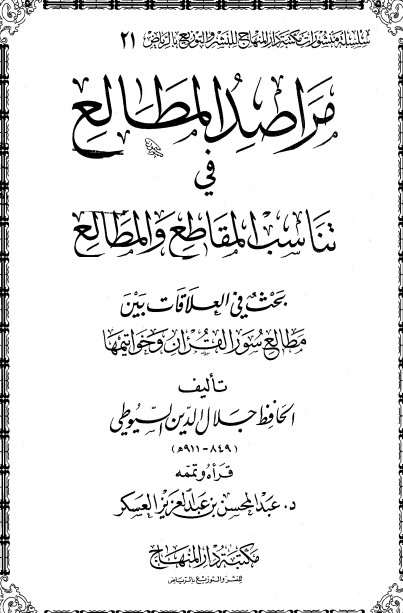 سلسلة منشورات مكتبة دار المنهاج للنشر والتوزيع بالرياض ٢١
مَرَاصِدُ المَطَالِعِ
في
تَنَاسُبِ المَقَاطِعِ وَالمَطَالِعِ
بَحْثٌ في العَلَاقَاتِ بَيْنَ
مَطَالِعِ سُوَرِ القُرْآنِ وَخَوَاتِيمِهَا
تأليف
الحافظ جلال الدين السيوطي
(٨٤٩ - ٩١١ هـ)
قرأه وتممه
د. عبد المحسن بن عبد العزيز العسكر
مكتبة دار المنهاج
للنشر والتوزيع بالرياض